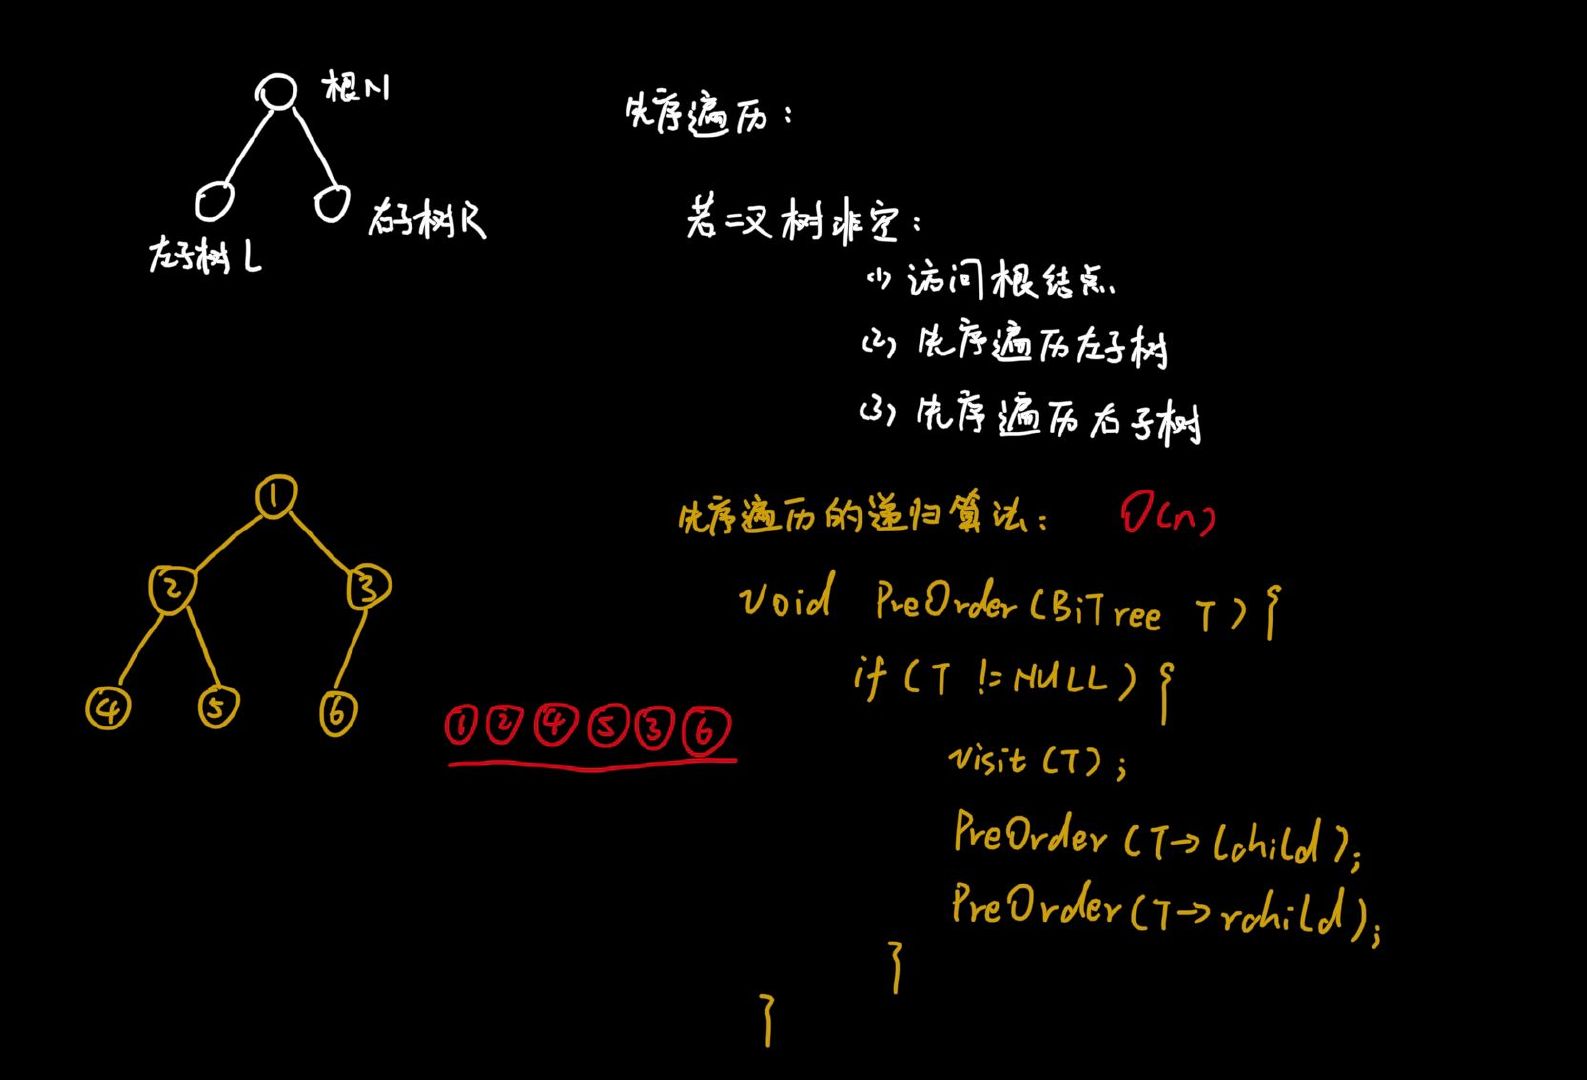 根N
左子树L
右子树R
先序遍历：
若二叉树非空：
(1) 访问根结点
(2) 先序遍历左子树
(3) 先序遍历右子树
1
2
3
4
5
6
①②④⑤③⑥
先序遍历的递归算法： O(n)
void PreOrder(BiTree T){
if(T !=NULL){
visit(T);
PreOrder(T→lchild);
PreOrder(T→rchild);
}
}